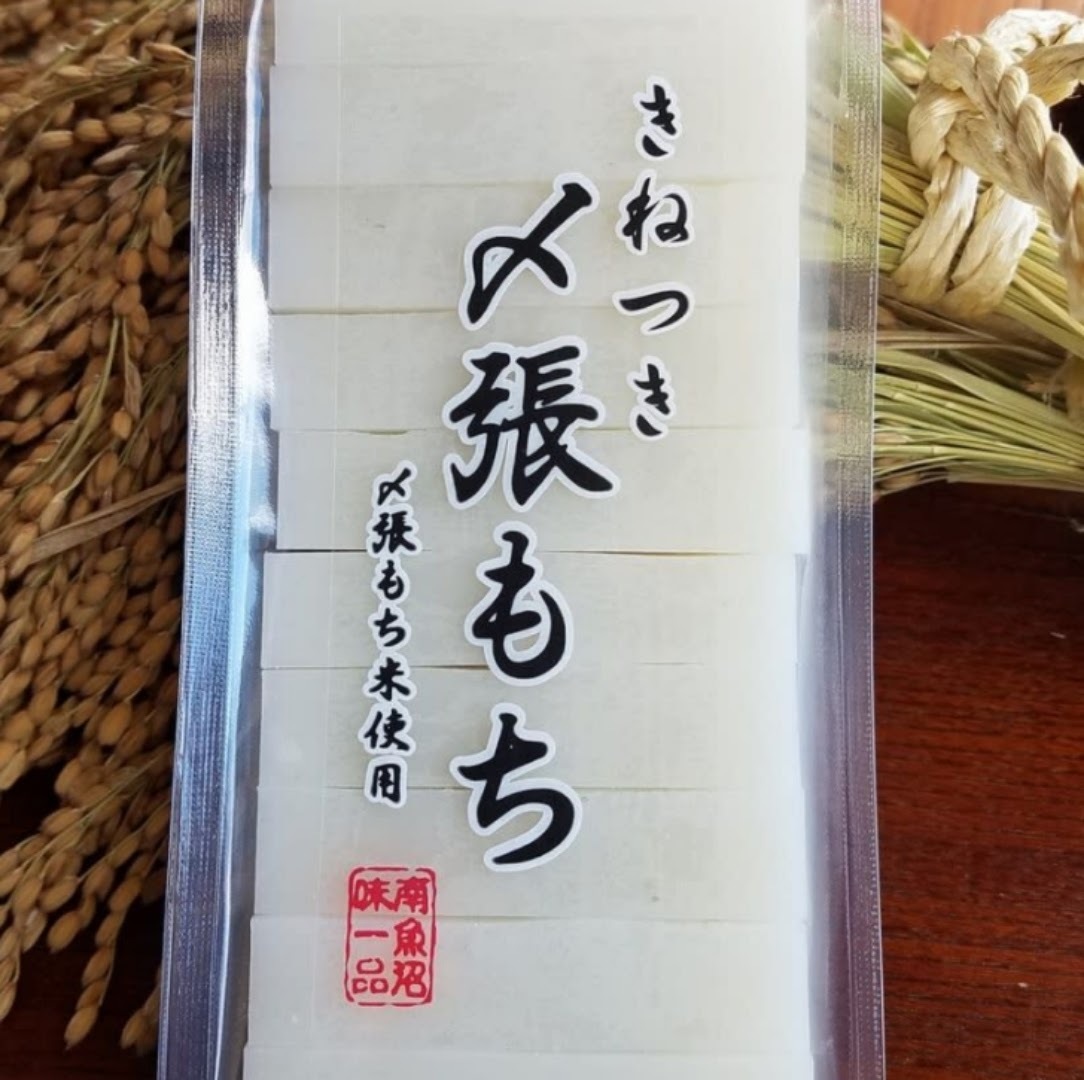 きねつき
〆張もち
〆張もち米使用
南魚沼
味一品